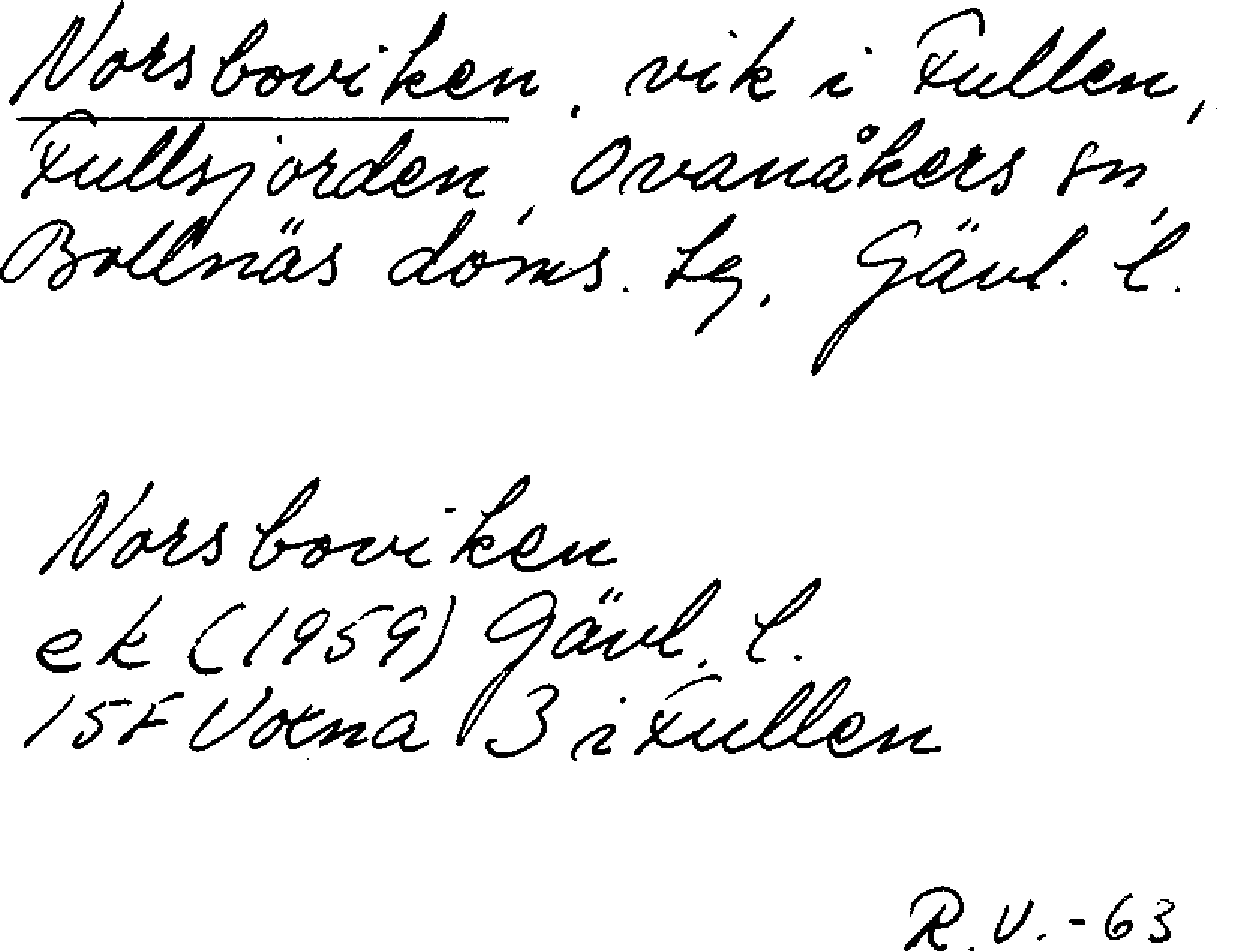 Norsboviken, vik i Fullen,
Fullsjorden, Ovanåkers sn,
Bollnäs doms. tg, Gävl. l.
Norsboviken
ek (1959) Gävl. l.
15F Voxna 3 i Fullen
R.V.-63